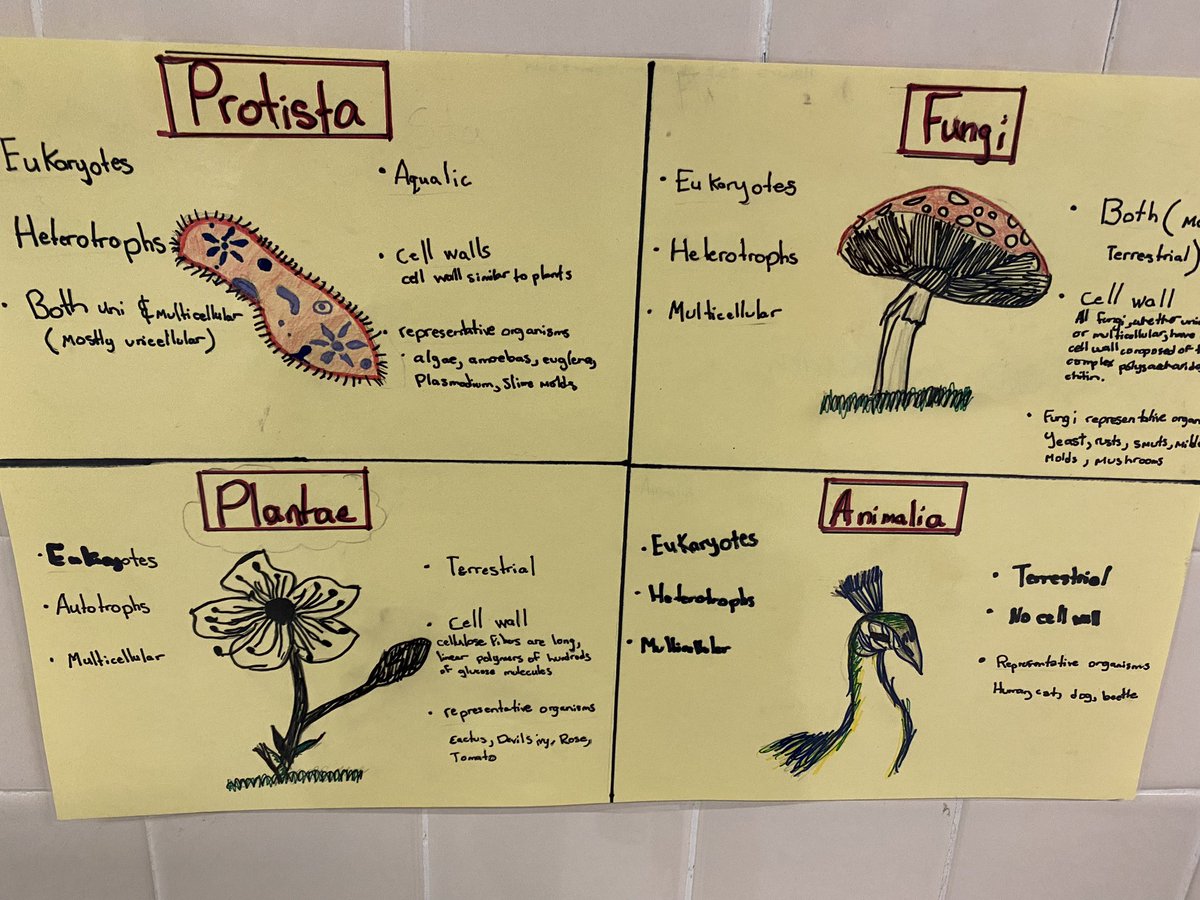 Protista
Eukaryotes
Heterotrophs
• Both uni & Multicellular
(mostly unicellular)
• Aqualic
• Cell walls
cell wall similar to plants
• representative organisms
algae, amoebas, euglena,
Plasmodium, Slime molds
Fungi
• Eukaryotes
• Heterotrophs
• Multicellular
• Both (
Terrestrial)
• Cell wall
All Fungi, whether
or multicellular, have
cell wall composed of
complex
chitin.
• Fungi representative
Yeast, rusts, smuts,
Molds, Mushrooms
Plantae
• Eukaryotes
• Autotrophs
• Multicellular
• Terrestrial
• Cell wall
cellulose Fibers are long,
linear polymers of hundreds
of glucose molecules
• representative organisms
Cactus, Devils ivy, Rose,
Tomato
Animalia
• Eukaryotes
• Heterotrophs
• Multicellular
• Terrestrial
• No cell wall
• Representative organisms
Human, cat, dog, beetle